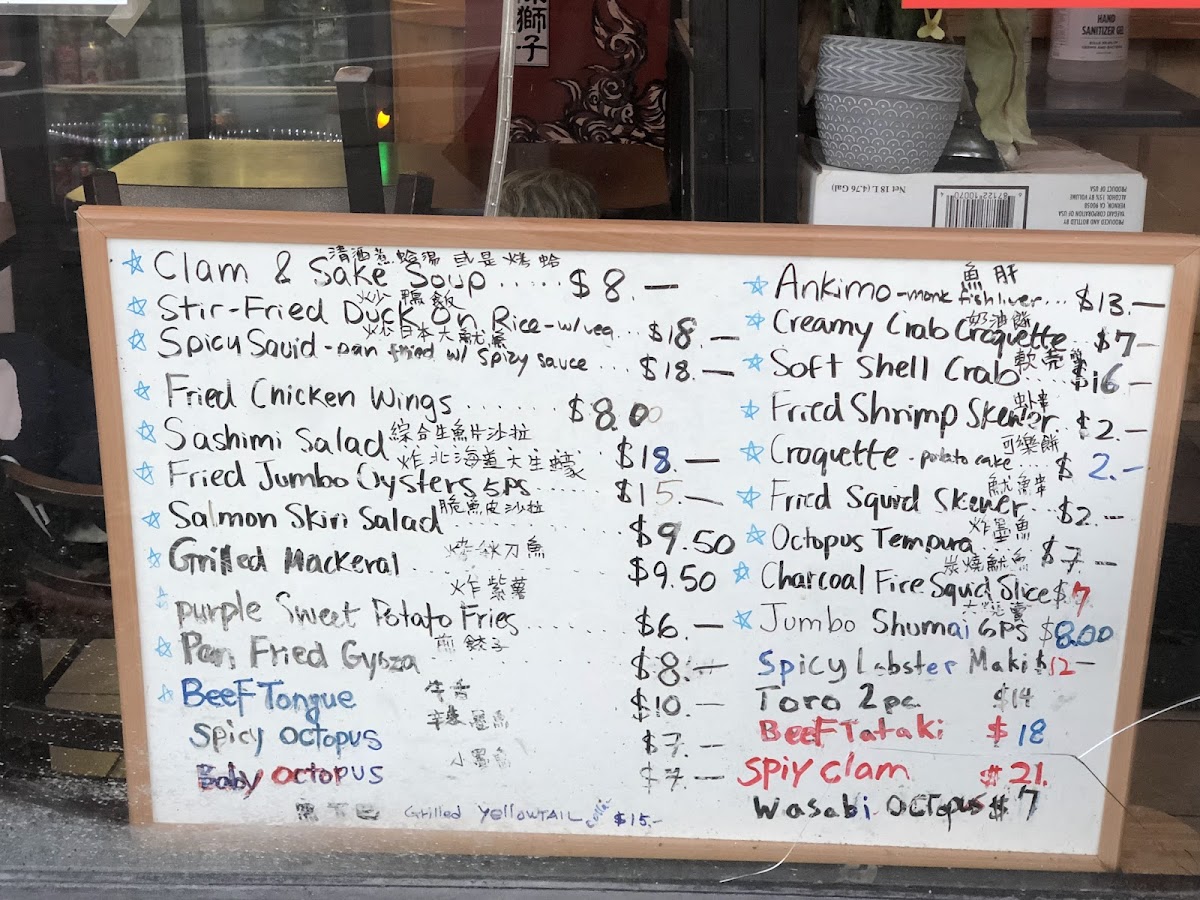 獅子
HAND
SANITIZER GEL
Net 18 L (4.76 Gal)
87122"10070
PRODUCED AND BOTTLED BY
YAEGAKI CORPORATION OF USA
VERNON, CA 90058
ALCOHOL 15% BY VOLUME
PRODUCT OF USA
清酒煮蛤湯 或是 烤蛤
Clam & Sake Soup ..... $8.—
炒鴨飯
Stir-Fried Duck On Rice-w/veg .. $18.—
炒日本大魷魚
Spicy Squid - pan fried w/ spizy sauce ... $18.—
Fried Chicken Wings ....... $8.00
Sashimi Salad 綜合生魚片沙拉 $18.—
炸北海道大生蠔
Fried Jumbo Oysters 5ps ..... $15.—
Salmon Skin Salad 脆魚皮沙拉 $9.50
Grilled Mackeral 烤秋刀魚 $9.50
炸紫薯
purple Sweet Potato Fries ....... $6.—
Pan Fried Gyoza 煎餃子 $8.—
Beef Tongue 牛舌 $10.—
Spicy Octopus $7.—
Baby Octopus 小墨魚 $7.—
Grilled YellowTAIL $15.-
魚肝
Ankimo - monk fish liver ... $13.—
奶油餅
Creamy Crab Croquette $7—
Soft Shell Crab 軟壳 $16—
Fried Shrimp Skewer .. $2.—
可樂餅
Croquette - potato cake .... $2.-
魷魚串
Fried Squid Skewer .. $2.—
炸墨魚
Octopus Tempura $7.—
炭燒魷魚
Charcoal Fire Squid Slice $7
Jumbo Shumai 6ps $8.00
Spicy Lobster Maki $12—
Toro 2pc $14
Beef Tataki $18
Spiy Clam $21.
Wasabi Octopus $7